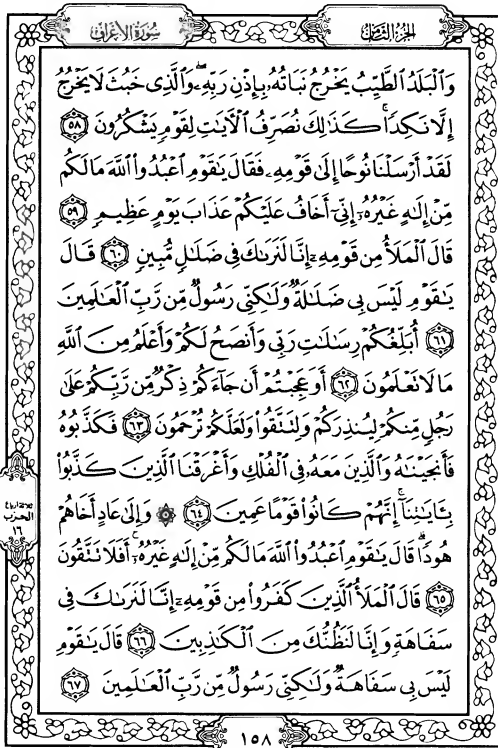 الجزء الثامن
سورة الأعراف
وَٱلْبَلَدُ ٱلطَّيِّبُ يَخْرُجُ نَبَاتُهُۥ بِإِذْنِ رَبِّهِۦ ۖ وَٱلَّذِى خَبُثَ لَا يَخْرُجُ
إِلَّا نَكِدًا ۚ كَذَٰلِكَ نُصَرِّفُ ٱلْءَايَٰتِ لِقَوْمٍ يَشْكُرُونَ ٥٨
لَقَدْ أَرْسَلْنَا نُوحًا إِلَىٰ قَوْمِهِۦ فَقَالَ يَٰقَوْمِ ٱعْبُدُوا۟ ٱللَّهَ مَا لَكُم
مِّنْ إِلَٰهٍ غَيْرُهُۥٓ إِنِّىٓ أَخَافُ عَلَيْكُمْ عَذَابَ يَوْمٍ عَظِيمٍ ٥٩
قَالَ ٱلْمَلَأُ مِن قَوْمِهِۦٓ إِنَّا لَنَرَىٰكَ فِى ضَلَٰلٍ مُّبِينٍ ٦٠ قَالَ
يَٰقَوْمِ لَيْسَ بِى ضَلَٰلَةٌ وَلَٰكِنِّى رَسُولٌ مِّن رَّبِّ ٱلْعَٰلَمِينَ
٦١ أُبَلِّغُكُمْ رِسَٰلَٰتِ رَبِّى وَأَنصَحُ لَكُمْ وَأَعْلَمُ مِنَ ٱللَّهِ
مَا لَا تَعْلَمُونَ ٦٢ أَوَعَجِبْتُمْ أَن جَآءَكُمْ ذِكْرٌ مِّن رَّبِّكُمْ عَلَىٰ
رَجُلٍ مِّنكُمْ لِيُنذِرَكُمْ وَلِتَتَّقُوا۟ وَلَعَلَّكُمْ تُرْحَمُونَ ٦٣ فَكَذَّبُوهُ
فَأَنجَيْنَٰهُ وَٱلَّذِينَ مَعَهُۥ فِى ٱلْفُلْكِ وَأَغْرَقْنَا ٱلَّذِينَ كَذَّبُوا۟
بِـَٔايَٰتِنَآ ۚ إِنَّهُمْ كَانُوا۟ قَوْمًا عَمِينَ ٦٤ ۞ وَإِلَىٰ عَادٍ أَخَاهُمْ
هُودًا ۗ قَالَ يَٰقَوْمِ ٱعْبُدُوا۟ ٱللَّهَ مَا لَكُم مِّنْ إِلَٰهٍ غَيْرُهُۥٓ ۚ أَفَلَا تَتَّقُونَ
٦٥ قَالَ ٱلْمَلَأُ ٱلَّذِينَ كَفَرُوا۟ مِن قَوْمِهِۦٓ إِنَّا لَنَرَىٰكَ فِى
سَفَاهَةٍ وَإِنَّا لَنَظُنُّكَ مِنَ ٱلْكَٰذِبِينَ ٦٦ قَالَ يَٰقَوْمِ
لَيْسَ بِى سَفَاهَةٌ وَلَٰكِنِّى رَسُولٌ مِّن رَّبِّ ٱلْعَٰلَمِينَ ٦٧
الحزب
١٦
١٥٨